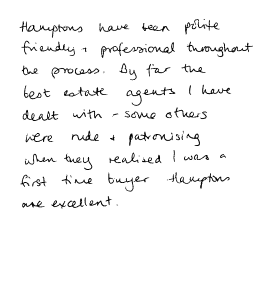 Hamptons have been polite
friendly + professional throughout
the process. By far the
best estate agents I have
dealt with - some others
were rude + patronising
when they realised I was a
first time buyer Hamptons
are excellent.